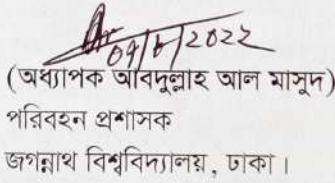 (অধ্যাপক আবদুল্লাহ আল মাসুদ)
পরিবহন প্রশাসক
জগন্নাথ বিশ্ববিদ্যালয়, ঢাকা।